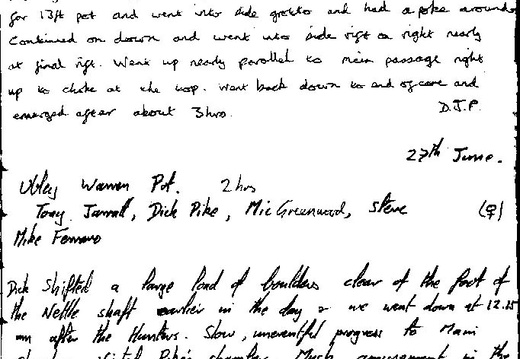 for 13ft pot and went into side grotto and had a poke around
Continued on down and went into side rift on right nearly
at final rift. Went up nearly parallel to main passage right
up to choke at the top. Went back down to end of cave and
emerged after about 3hrs. D.J.P.
27th June.
Ubley Warren Pot. 2 hrs
Tony Jarratt, Dick Pike, Mic Greenwood, Steve (♀)
Mike Ferraro
Dick shifted a large load of boulders clear of the foot of
the Nettle shaft earlier in the day & we went down at 12.25
am after the Hunters. Slow, uneventful progress to Main
Much amusement in the